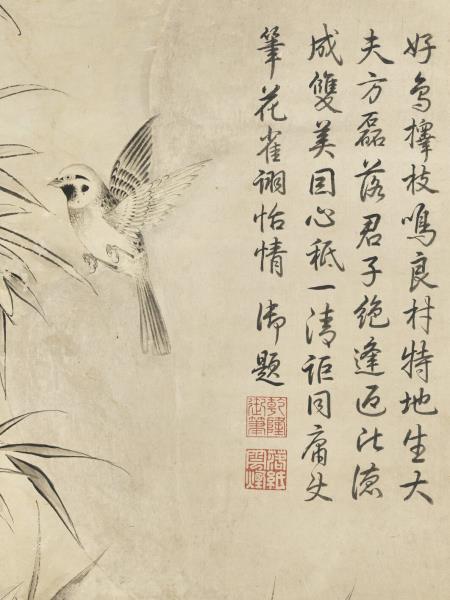 好鳥擇枝鳴良材特地生大
夫方磊落君子絶逢迎比德
成雙美因心秪一清詎同庸史
筆花雀詡怡情 御題
乾隆御筆
落紙雲煙